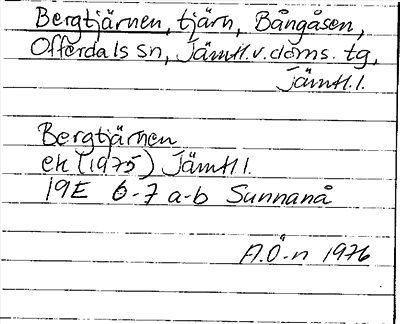 Bergtjärnen, tjärn, Bångåsen,
Offerdals sn, Jämtl.v.doms. tg,
Jämtl.l.
Bergtjärnen
ek (1975) Jämtl l.
19E 6-7 a-b Sunnanå
A.Ö-n 1976